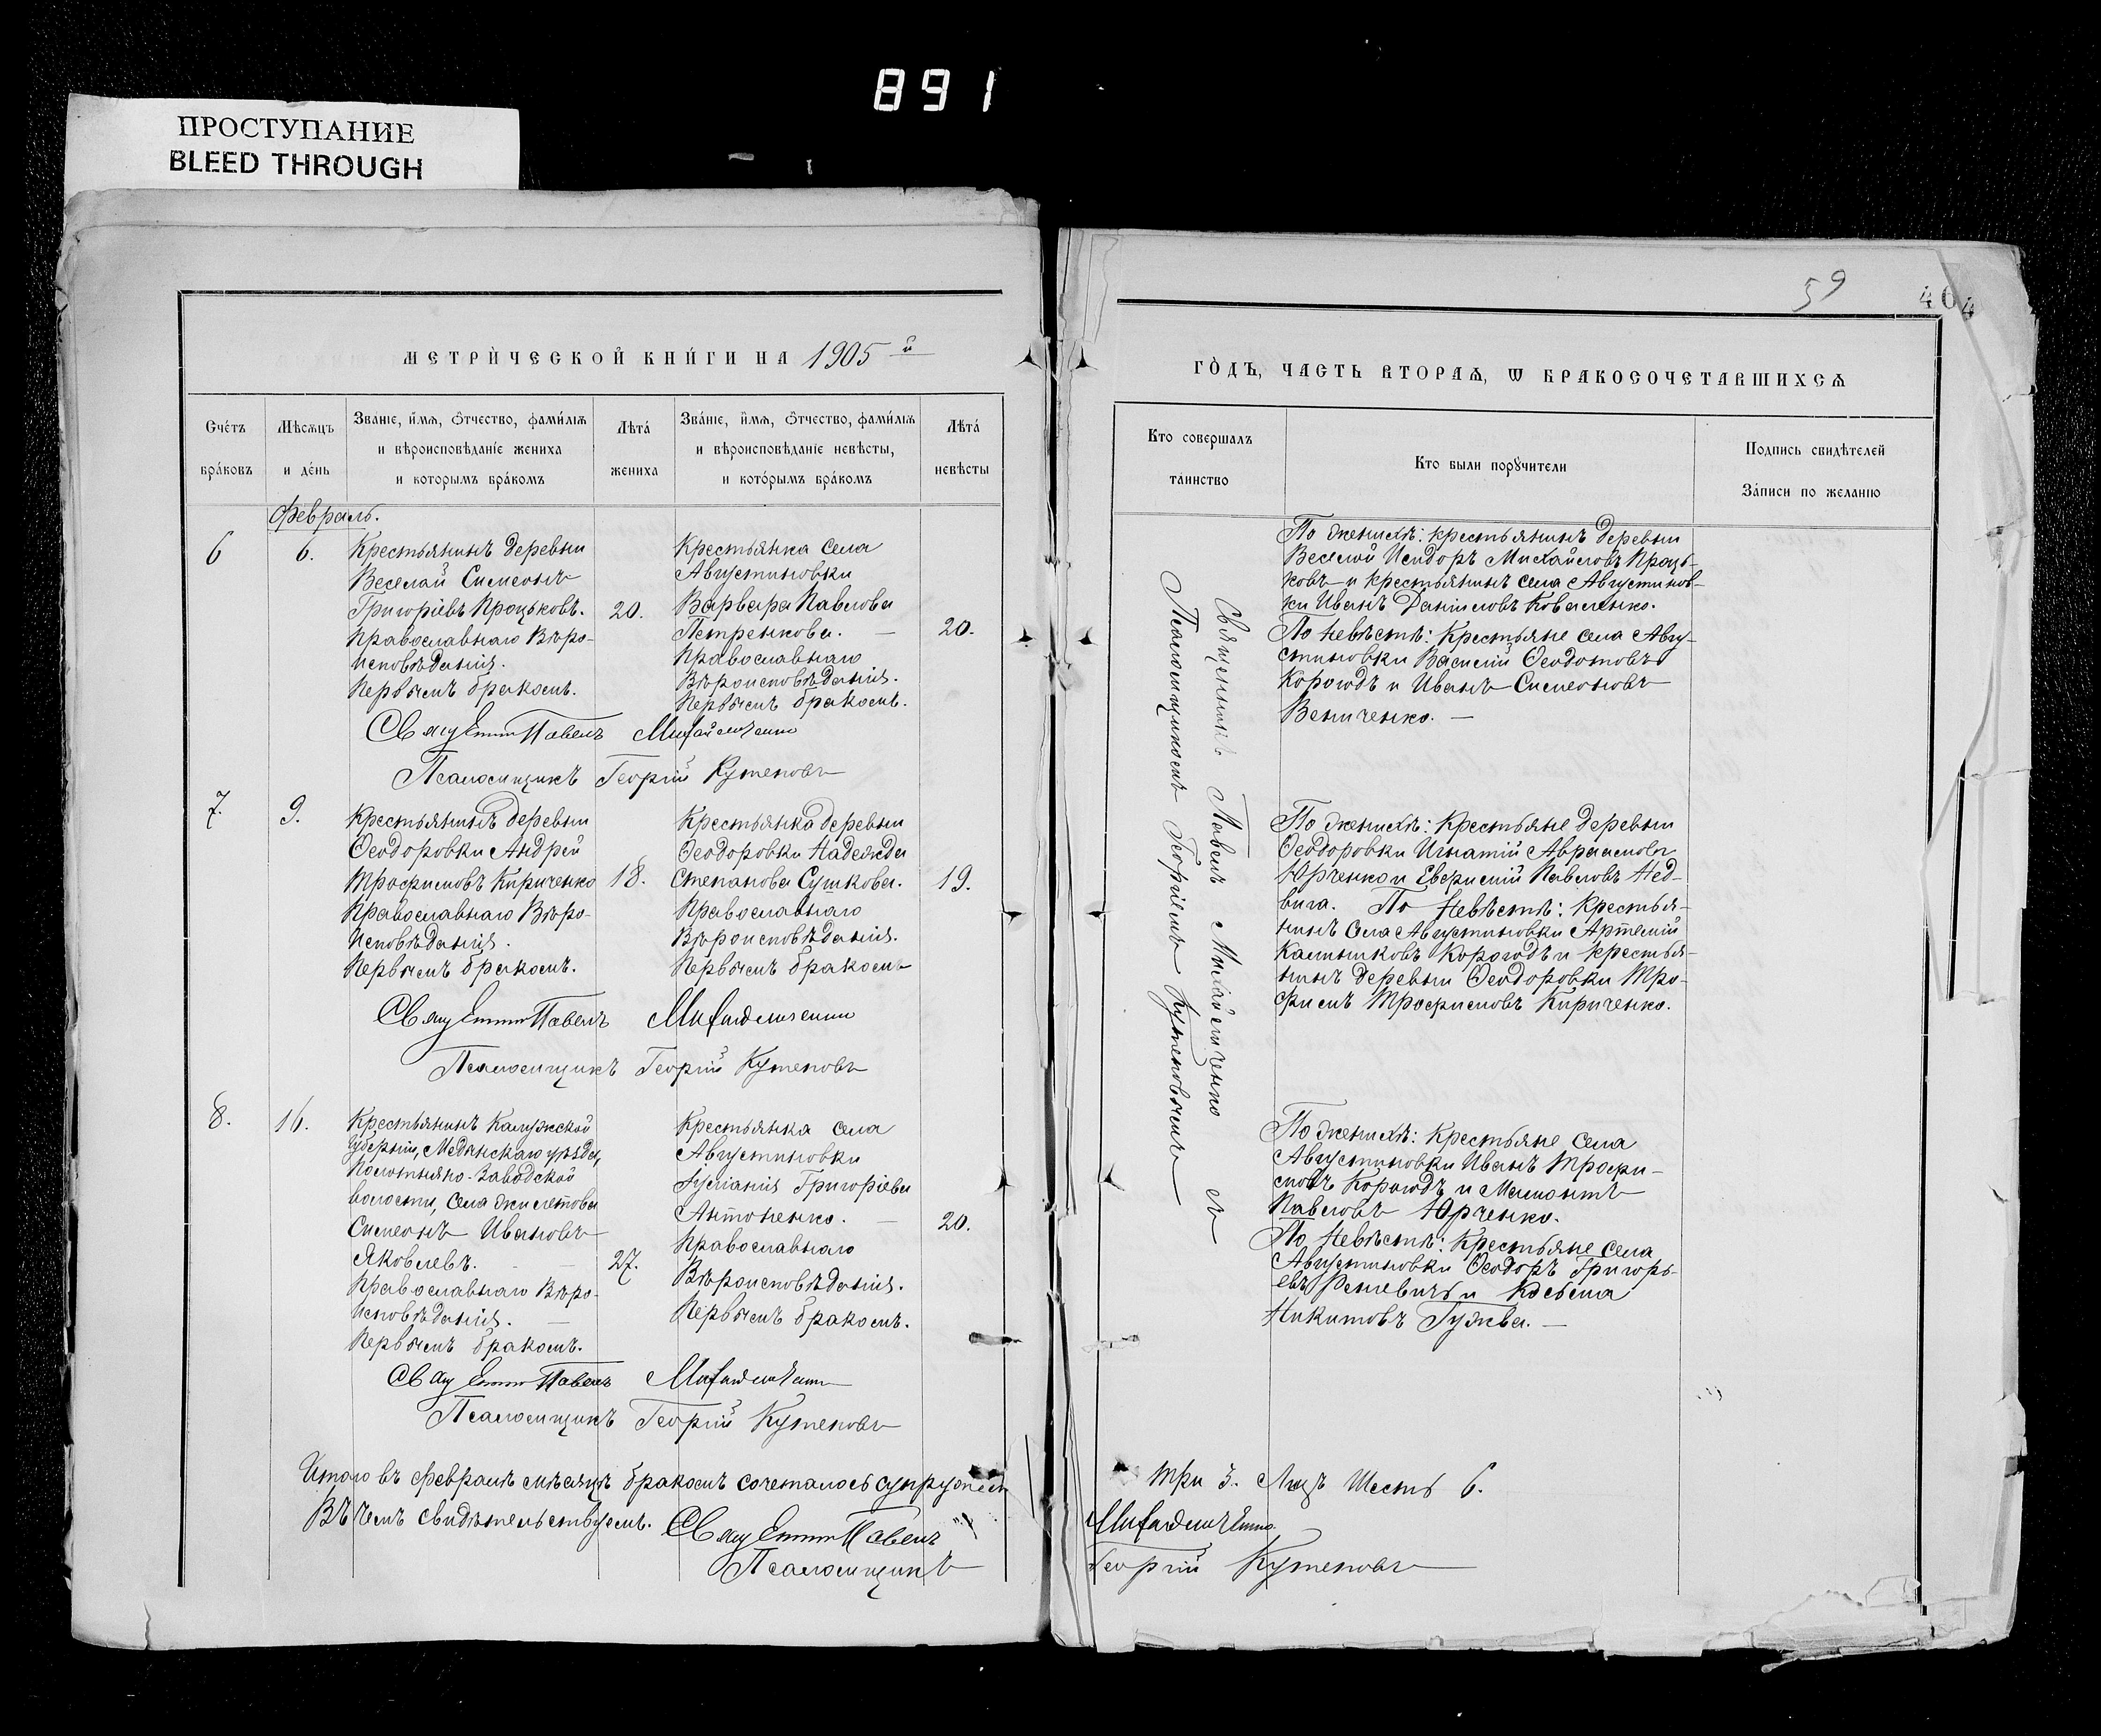 891
ПРОСТУПАНИЕ
BLEED THROUGH
МЕТРИ́ЧЕСКОЙ КНИ́ГИ НА 1905й
Сче́тъ
бра́ковъ
Мѣсѧцъ
и де́нь
Зва́нїе, и́мѧ, ѻ́тчество, фами́лїѧ
и вѣроисповѣданїе жениха
и которымъ бра́комъ
Лѣта́
жениха
Зва́нїе, и́мѧ, ѻ́тчество, фами́лїѧ
и вѣроисповѣданїе невѣсты,
и кото́рымъ бра́комъ
Лѣта́
невѣсты
Февраль.
6
6.
Крестьянинъ деревни
Веселой Симеонъ
Григоріевъ Процьковъ.
Православнаго Вѣро-
исповѣданія.
Первымъ бракомъ.
20.
Крестьянка села
Августиновки
Варвара Павлова
Петренкова. —
Православнаго
Вѣроисповѣданія.
Первымъ бракомъ.
20.
Священникъ Павелъ Михайличенко
Псаломщикъ Георгій Кутеповъ
7.
9.
Крестьянинъ деревни
Ѳеодоровки Андрей
Трофимовъ Кириченко
Православнаго Вѣро-
исповѣданія.
Первымъ бракомъ.
18.
Крестьянка деревни
Ѳеодоровки Надежда
Степанова Сушкова.
Православнаго
Вѣроисповѣданія.
Первымъ бракомъ
19.
Священникъ Павелъ Михайличенко
Псаломщикъ Георгій Кутеповъ
8.
16.
Крестьянинъ Калужской
губерніи, Медынскаго уѣзда,
Полотняно-Заводской
волости, села Жилетова
Симеонъ Ивановъ
Яковлевъ.
Православнаго Вѣро-
исповѣданія. —
Первымъ бракомъ.
27.
Крестьянка села
Августиновки
Іуліанія Григоріева
Антоненко. —
Православнаго
Вѣроисповѣданія.
Первымъ бракомъ.
20.
Священникъ Павелъ Михайличенко
Псаломщикъ Георгій Кутеповъ
Итого въ февралѣ мѣсяцѣ бракомъ сочеталось супружествъ
Въ чемъ свидѣтельствуемъ. Священникъ Павелъ
Псаломщикъ
59
404
ГО́ДЪ, ЧАСТЬ ВТОРАѦ, Ѡ БРАКОСОЧЕТАВШИХСѦ
Кто совершалъ
та́инство
Кто были порꙋ́чители
Подпись свидѣтелей
За́писи по желанїю
Священникъ Павелъ Михайличенко съ
Псаломщикомъ Георгіемъ Кутеповымъ
По женихѣ: крестьянинъ деревни
Веселой Исидоръ Михайловъ Проць-
ковъ и крестьянинъ села Августинов-
ки Иванъ Даниловъ Коваленко.
По невѣстѣ: Крестьяне села Авгу-
стиновки Василій Ѳеодотовъ
Корогодъ и Иванъ Симеоновъ
Величенко. —
По женихѣ: Крестьяне деревни
Ѳеодоровки Игнатій Авраамовъ
Юрченко и Евфимій Павловъ Нед-
вига. По Невѣстѣ: Крестья-
нинъ села Августиновки Артемій
Корогодъ и крестья-
нинъ деревни Ѳеодоровки Тро-
фимъ Трофимовъ Кириченко.
По женихѣ: Крестьяне села
Августиновки Иванъ Трофи-
мовъ Корогодъ и Мамонтъ
Павловъ Юрченко.
По Невѣстѣ: Крестьяне села
Августиновки Ѳеодоръ Григорь-
евъ и Косьма
Никитовъ Гужва. —
три 3. Лицъ Шесть 6.
Михайличенко
Георгій Кутеповъ